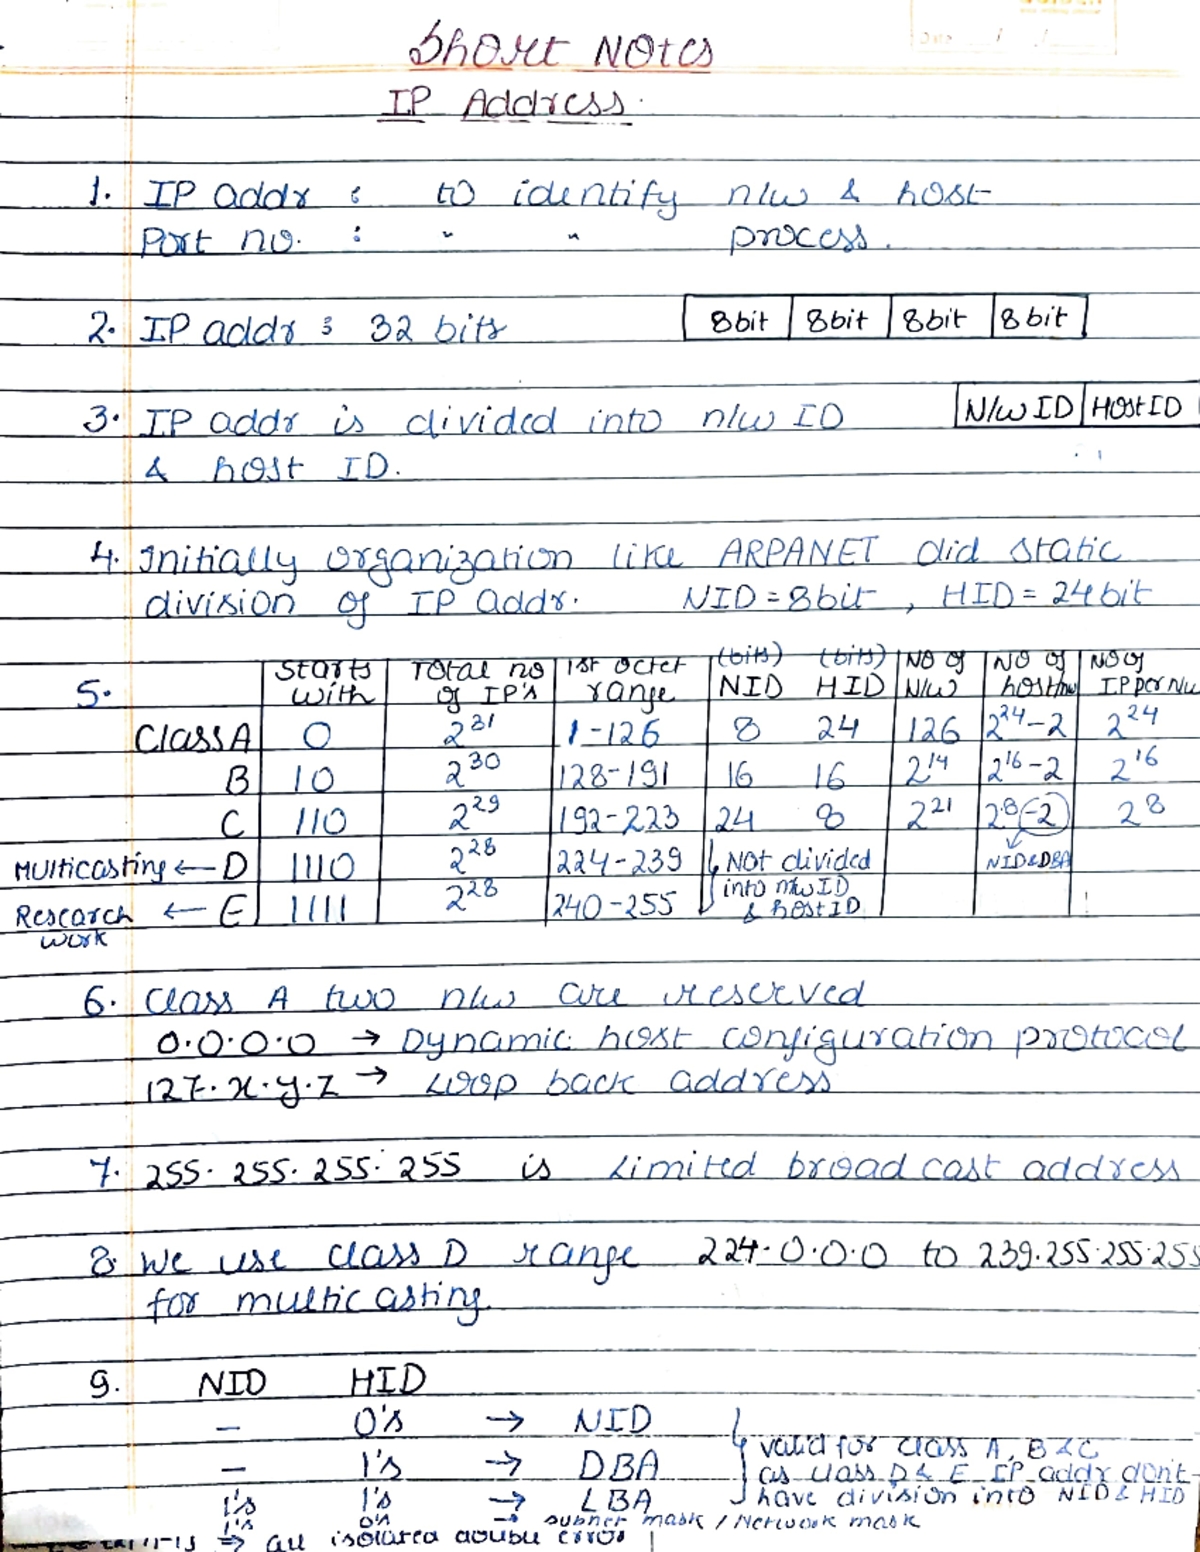 Short Notes
IP Address.
1. IP addr : to identify n/w & host
Port no. : " " process.
2. IP addr : 32 bits 8bit 8bit 8bit 8bit
3. IP addr is divided into n/w ID N/W ID HOST ID
& host ID.
4. Initially organization like ARPANET did static
division of IP addr. NID = 8bit , HID = 24bit
5. Starts with Total no of IP's 1st octet range (bits) NID (bits) HID NO of N/W NO of host/nw NO of IP per N/w
Class A 0 2^31 1-126 8 24 126 2^24-2 2^24
B 10 2^30 128-191 16 16 2^14 2^16-2 2^16
C 110 2^29 192-223 24 8 2^21 2^8-2 2^8
Multicasting ← D 1110 2^28 224-239 Not divided NID&DBA
into n/w ID
Research ← E 1111 2^28 240-255 & host ID
work
6. Class A two n/w are reserved
0.0.0.0 → Dynamic host configuration protocol
127.x.y.z → Loop back address
7. 255.255.255.255 is Limited broadcast address
8. We use class D range 224.0.0.0 to 239.255.255.255
for multicasting.
9. NID HID
— 0's → NID
— 1's → DBA valid for class A, B & C
as class D & E IP addr don't
1's 1's → LBA have division into NID & HID
1's 0's → subnet mask / Network mask
⇒ all isolated double error